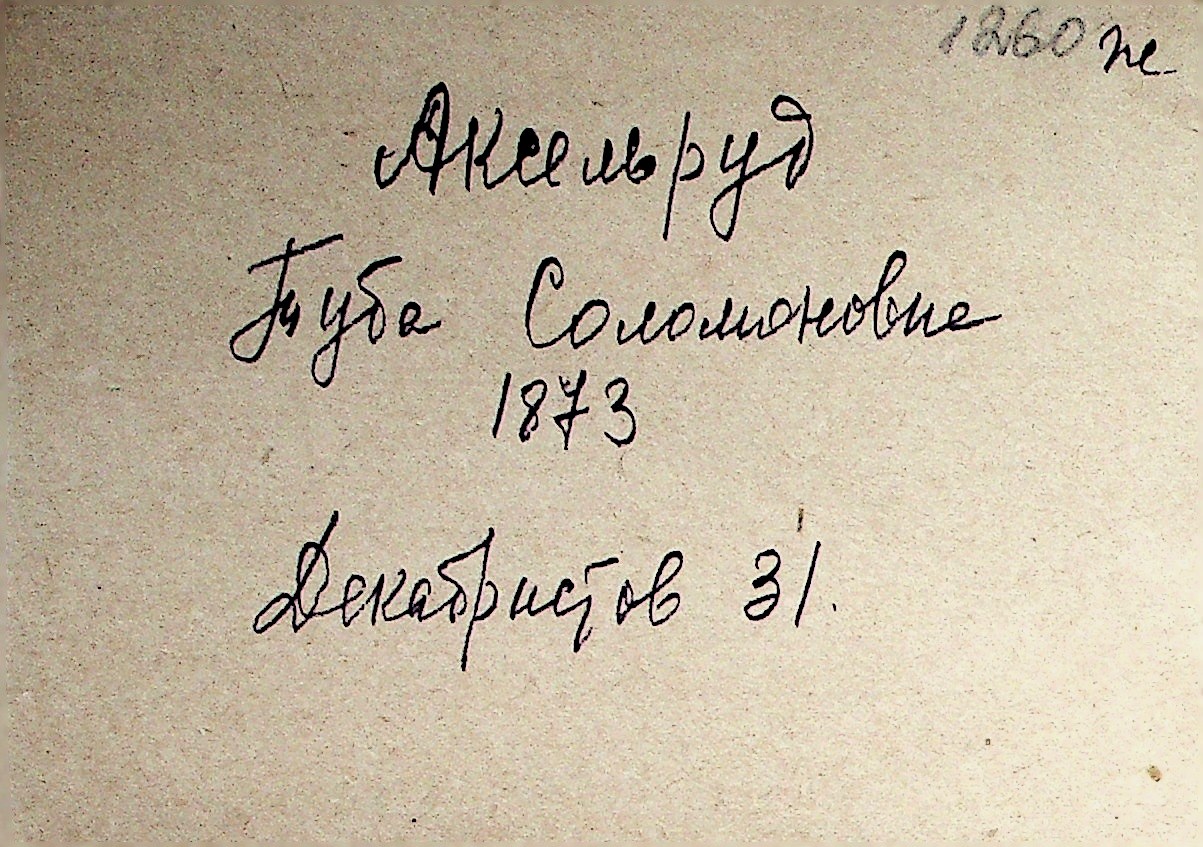 1260 же
Аксельруд
Туба Соломоновна
1873
Декабристов 31.